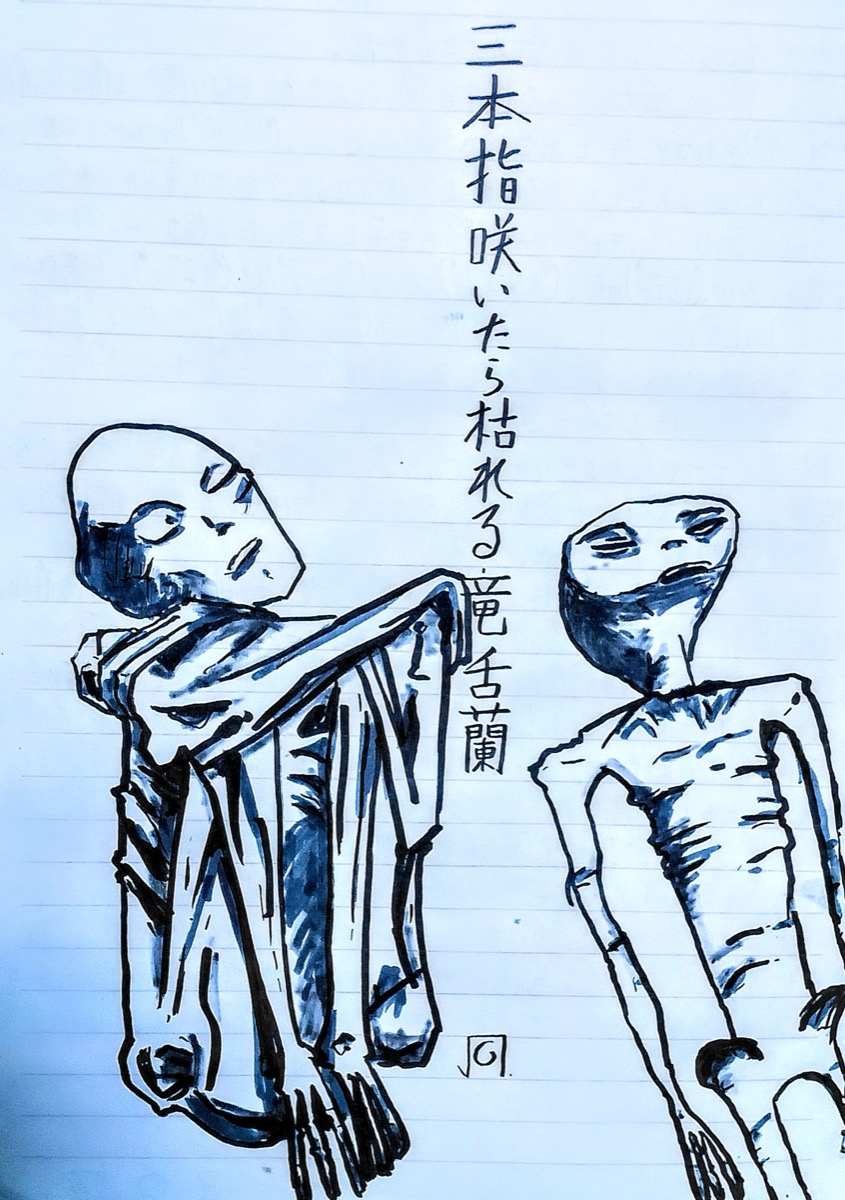 三本指咲いたら枯れる竜舌蘭
G